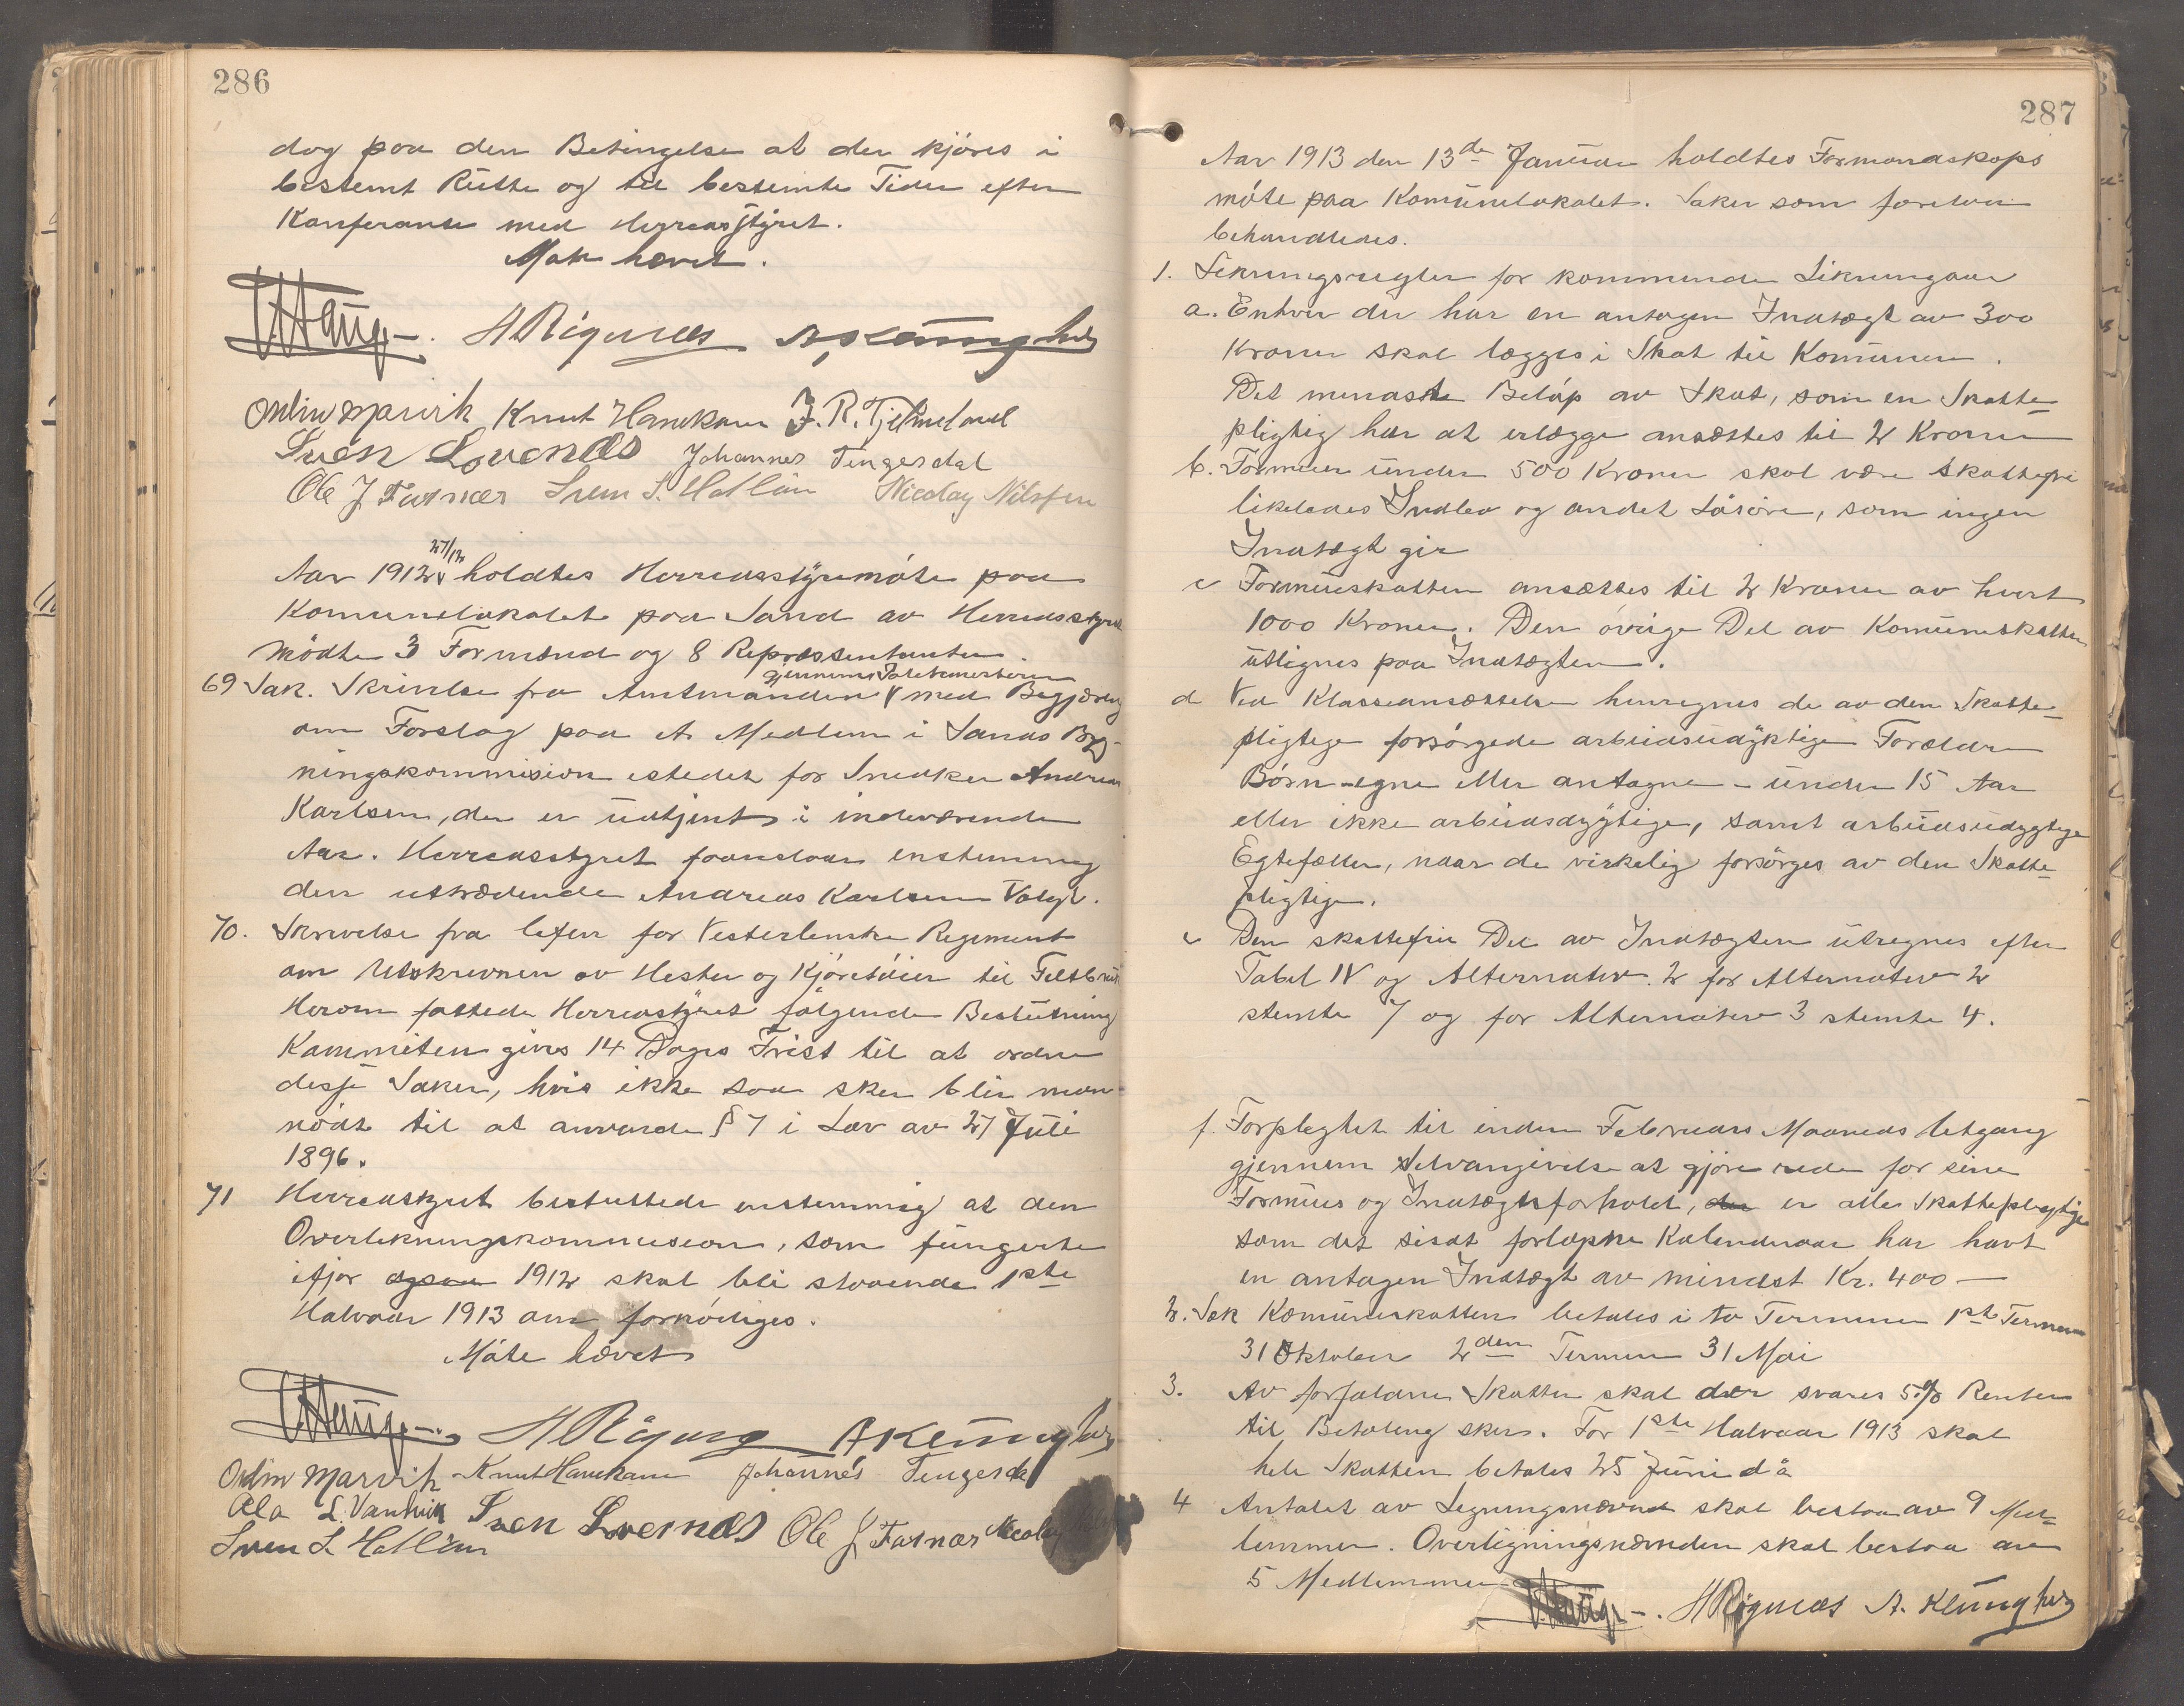 286
dog paa den Betingelse at der kjöres i
bestemt Rutte og til bestemte Tider efter
Konferanse med Herredsstyret.
Möte hævet.
H Rignæs
Odin Marvik Knut Hauskann J. R. Tjelmeland
Sven Lovenæs Johannes Tengesdal
Ole J Farnæs Sven S. Hatlân Nicolay Nilssen
Aar 1912 27/12 holdtes Herredsstyremöte paa
Komunelokalet paa Sand av Herredsstyret
mödte 3 Formænd og 8 Repræsentanter.
gjennem Politimesteren
69 Sak. Skrivelse fra Amtmanden med Begjæring
om Forslag paa et Medlem i Sands Byg-
ningskommision istedet for Snedker Andreas
Karlsen, der er uttjent i indeværende
Aar. Herredsstyret foreslaar enstemmig
den uttrædende Andreas Karlsen valgt.
70. Skrivelse fra Sefen for Vesterlenske Regiment
om Utskrivnen av Hester og Kjöretöier til Feltbruk
Herom fattede Herredstyret fölgende Beslutning
Kommiteen gives 14 Dages Frist til at ordne
disse Saker, hvis ikke saa sker blir man
nödt til at anvende § 7 i Lov av 27 Juli
1896.
71 Herredstyret besluttede enstemmig at den
Overlikningskommision, som fungerte
ifjor ogsaa 1912 skal bli staaende 1ste
Halvaar 1913 om fornödiges.
Möte hævet
H Rignæs
Odin Marvik Knut Hauskann Johannes Tengesdal
Ola L. Vanvik Sven Lovenæs Ole J Farnæs Nicolay
Sven S Hatlân
287
Aar 1913 den 13de Januar holdtes Formandskaps
möte paa Komunelokalet. Saker som foretoges
behandledes.
1. Likningsregler for kommende Likningsaar
a. Enhver der har en antagen Indtægt av 300
Kroner skal lægges i Skat til Komunen.
Det mindste Belöp av Skat, som en Skatte-
pligtig har at erlægge ansættes til 2 Kroner
b. Formuer under 500 Kroner skal være skattefri
likeledes Indbo og andet Lösöre, som ingen
Indtægt gir
c Formueskatten ansættes til 2 Kroner av hvert
1000 Kroner. Den övrige Del av Komuneskatten
utlignes paa Indtægten.
d Ved Klasseansættelse henregnes de av den Skatte-
pligtige forsörgede arbeidsudyktige Forældre
Börn - egne eller antagne - under 15 Aar
eller ikke arbeidsdygtige, samt arbeidsudygtige
Egtefæller, naar de virkelig forsörges av den Skatte-
pligtige.
e Den skattefrie Del av Indtægten utregnes efter
Tabel IV og Alternativ 2 for Alternativ 2
stemte 7 og for Alternativ 3 stemte 4.
f. Forplegtet til inden Februars Maaneds Utgang
gjennem Selvangivelse at gjöre rede for sine
Formues og Indtægtsforhold, er alle Skattepligtige
som det sisst forlöpne Kalenderaar har havt
en antagen Indtægt av mindst Kr. 400 —
2. Sak Komuneskatten betales i to Terminer 1ste Termin
31 Oktober 2den Termin 31 Mai
3. Av forfaldne Skatter skal der svares 5% Renter
til Betaling sker. For 1ste Halvaar 1913 skal
hele Skatten betales 25 Juni d å
4 Antalet av Ligningsnævnd skal bestaa av 9 Med-
lemmer. Overligningsnævnden skal bestaa av
5 Medlemmer
H Rignæs